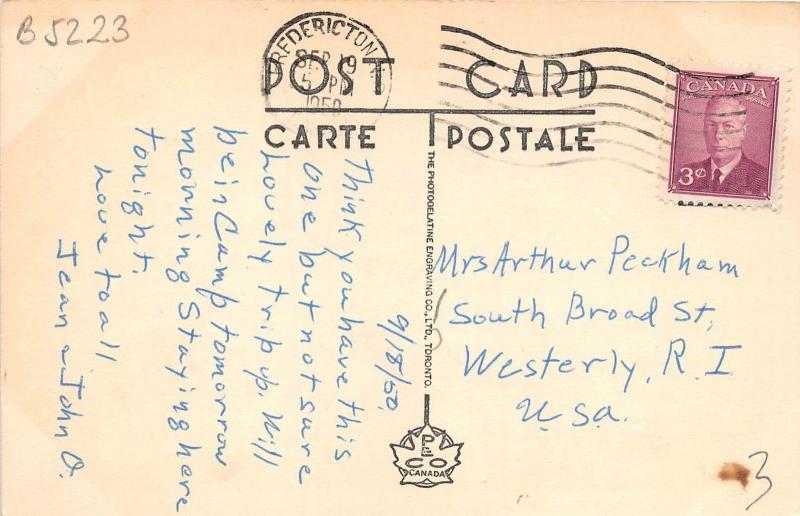 B5223
FREDERICTON
SEP 19
5 PM
1950
POST CARD
CARTE POSTALE
CANADA
POSTES POSTAGE
3¢
THE PHOTOGELATINE ENGRAVING CO., LTD., TORONTO.
PECO
CANADA
9/18/50.
Think you have this
one but not sure
Lovely trip up. Will
be in Camp tomorrow
morning Staying here
tonight.
Love to all
Jean & John O.
Mrs Arthur Peckham
South Broad St,
Westerly, R. I
U.Sa.
3